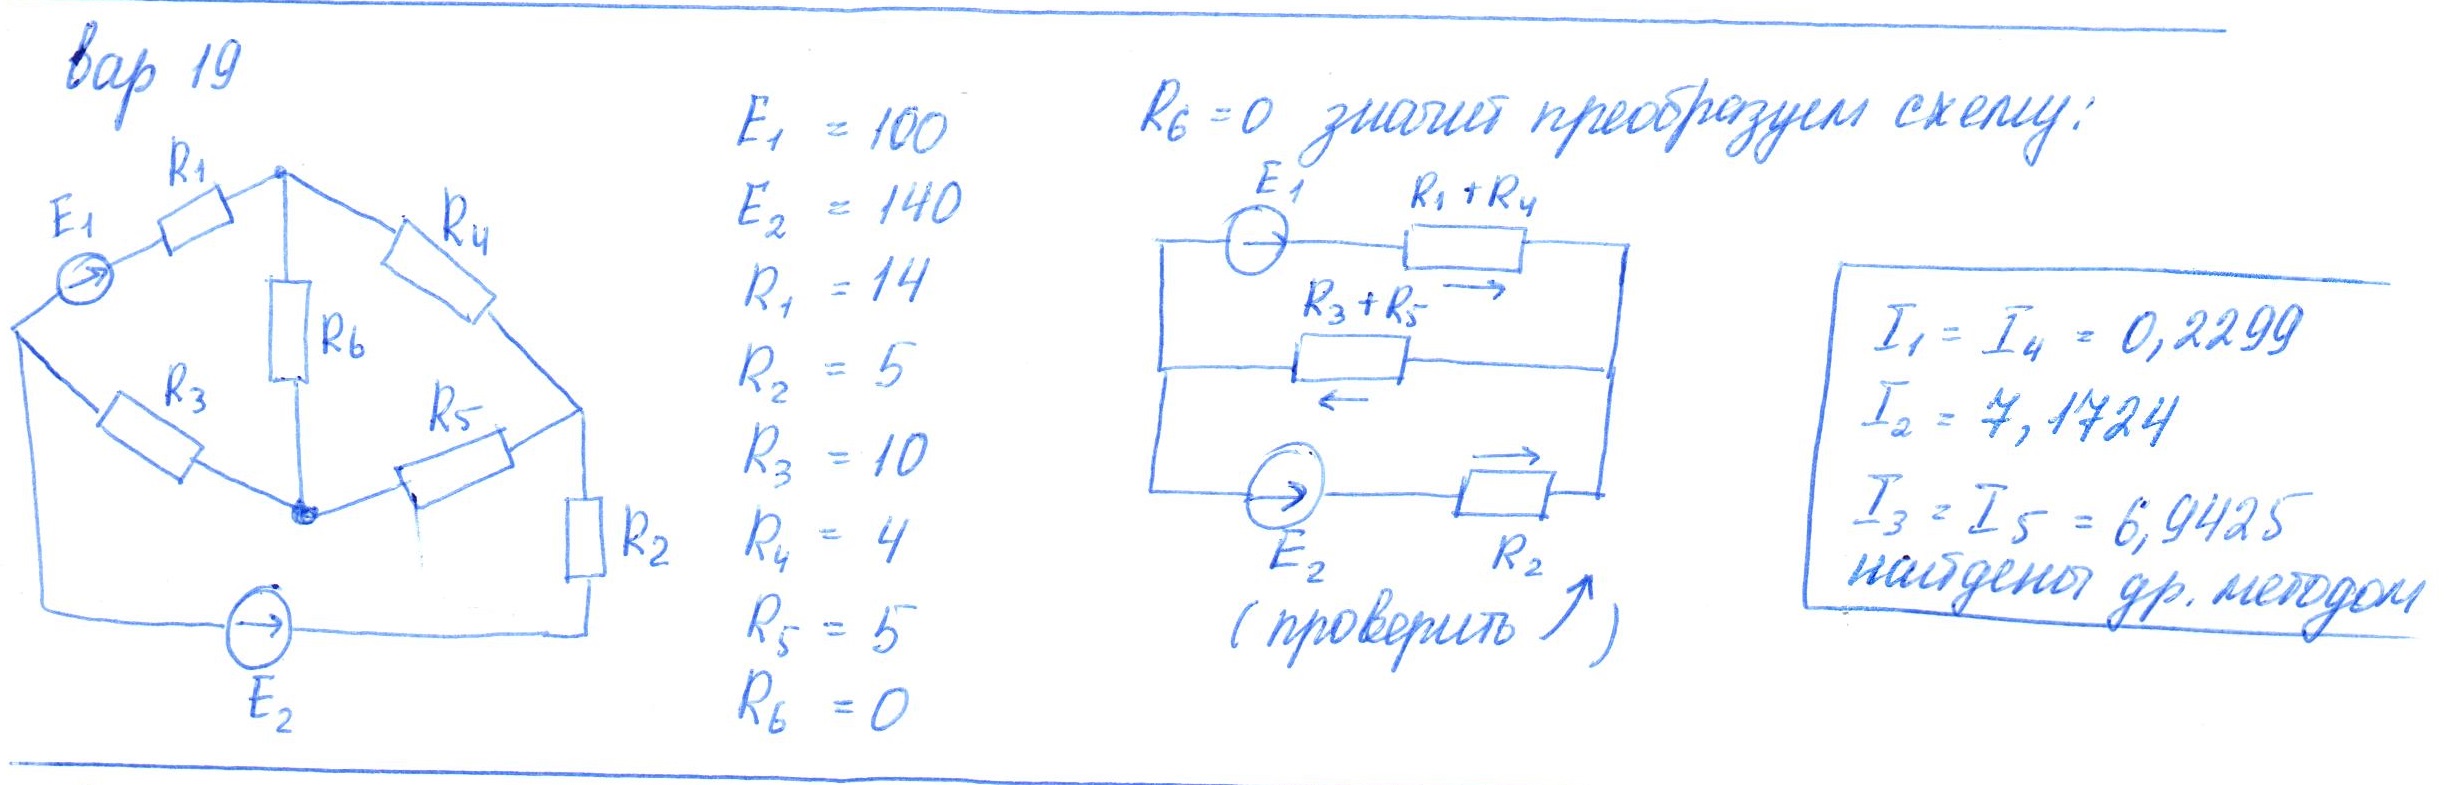 вар 19
R1
E1
R4
R6
R3
R5
R2
E2
E1 = 100
E2 = 140
R1 = 14
R2 = 5
R3 = 10
R4 = 4
R5 = 5
R6 = 0
R6 = 0 значит преобразуем схему:
E1
R1 + R4
R3 + R5
E2
R2
(проверить)
I1 = I4 = 0,2299
I2 = 7,1724
I3 = I5 = 6,9425
найдены др. методом